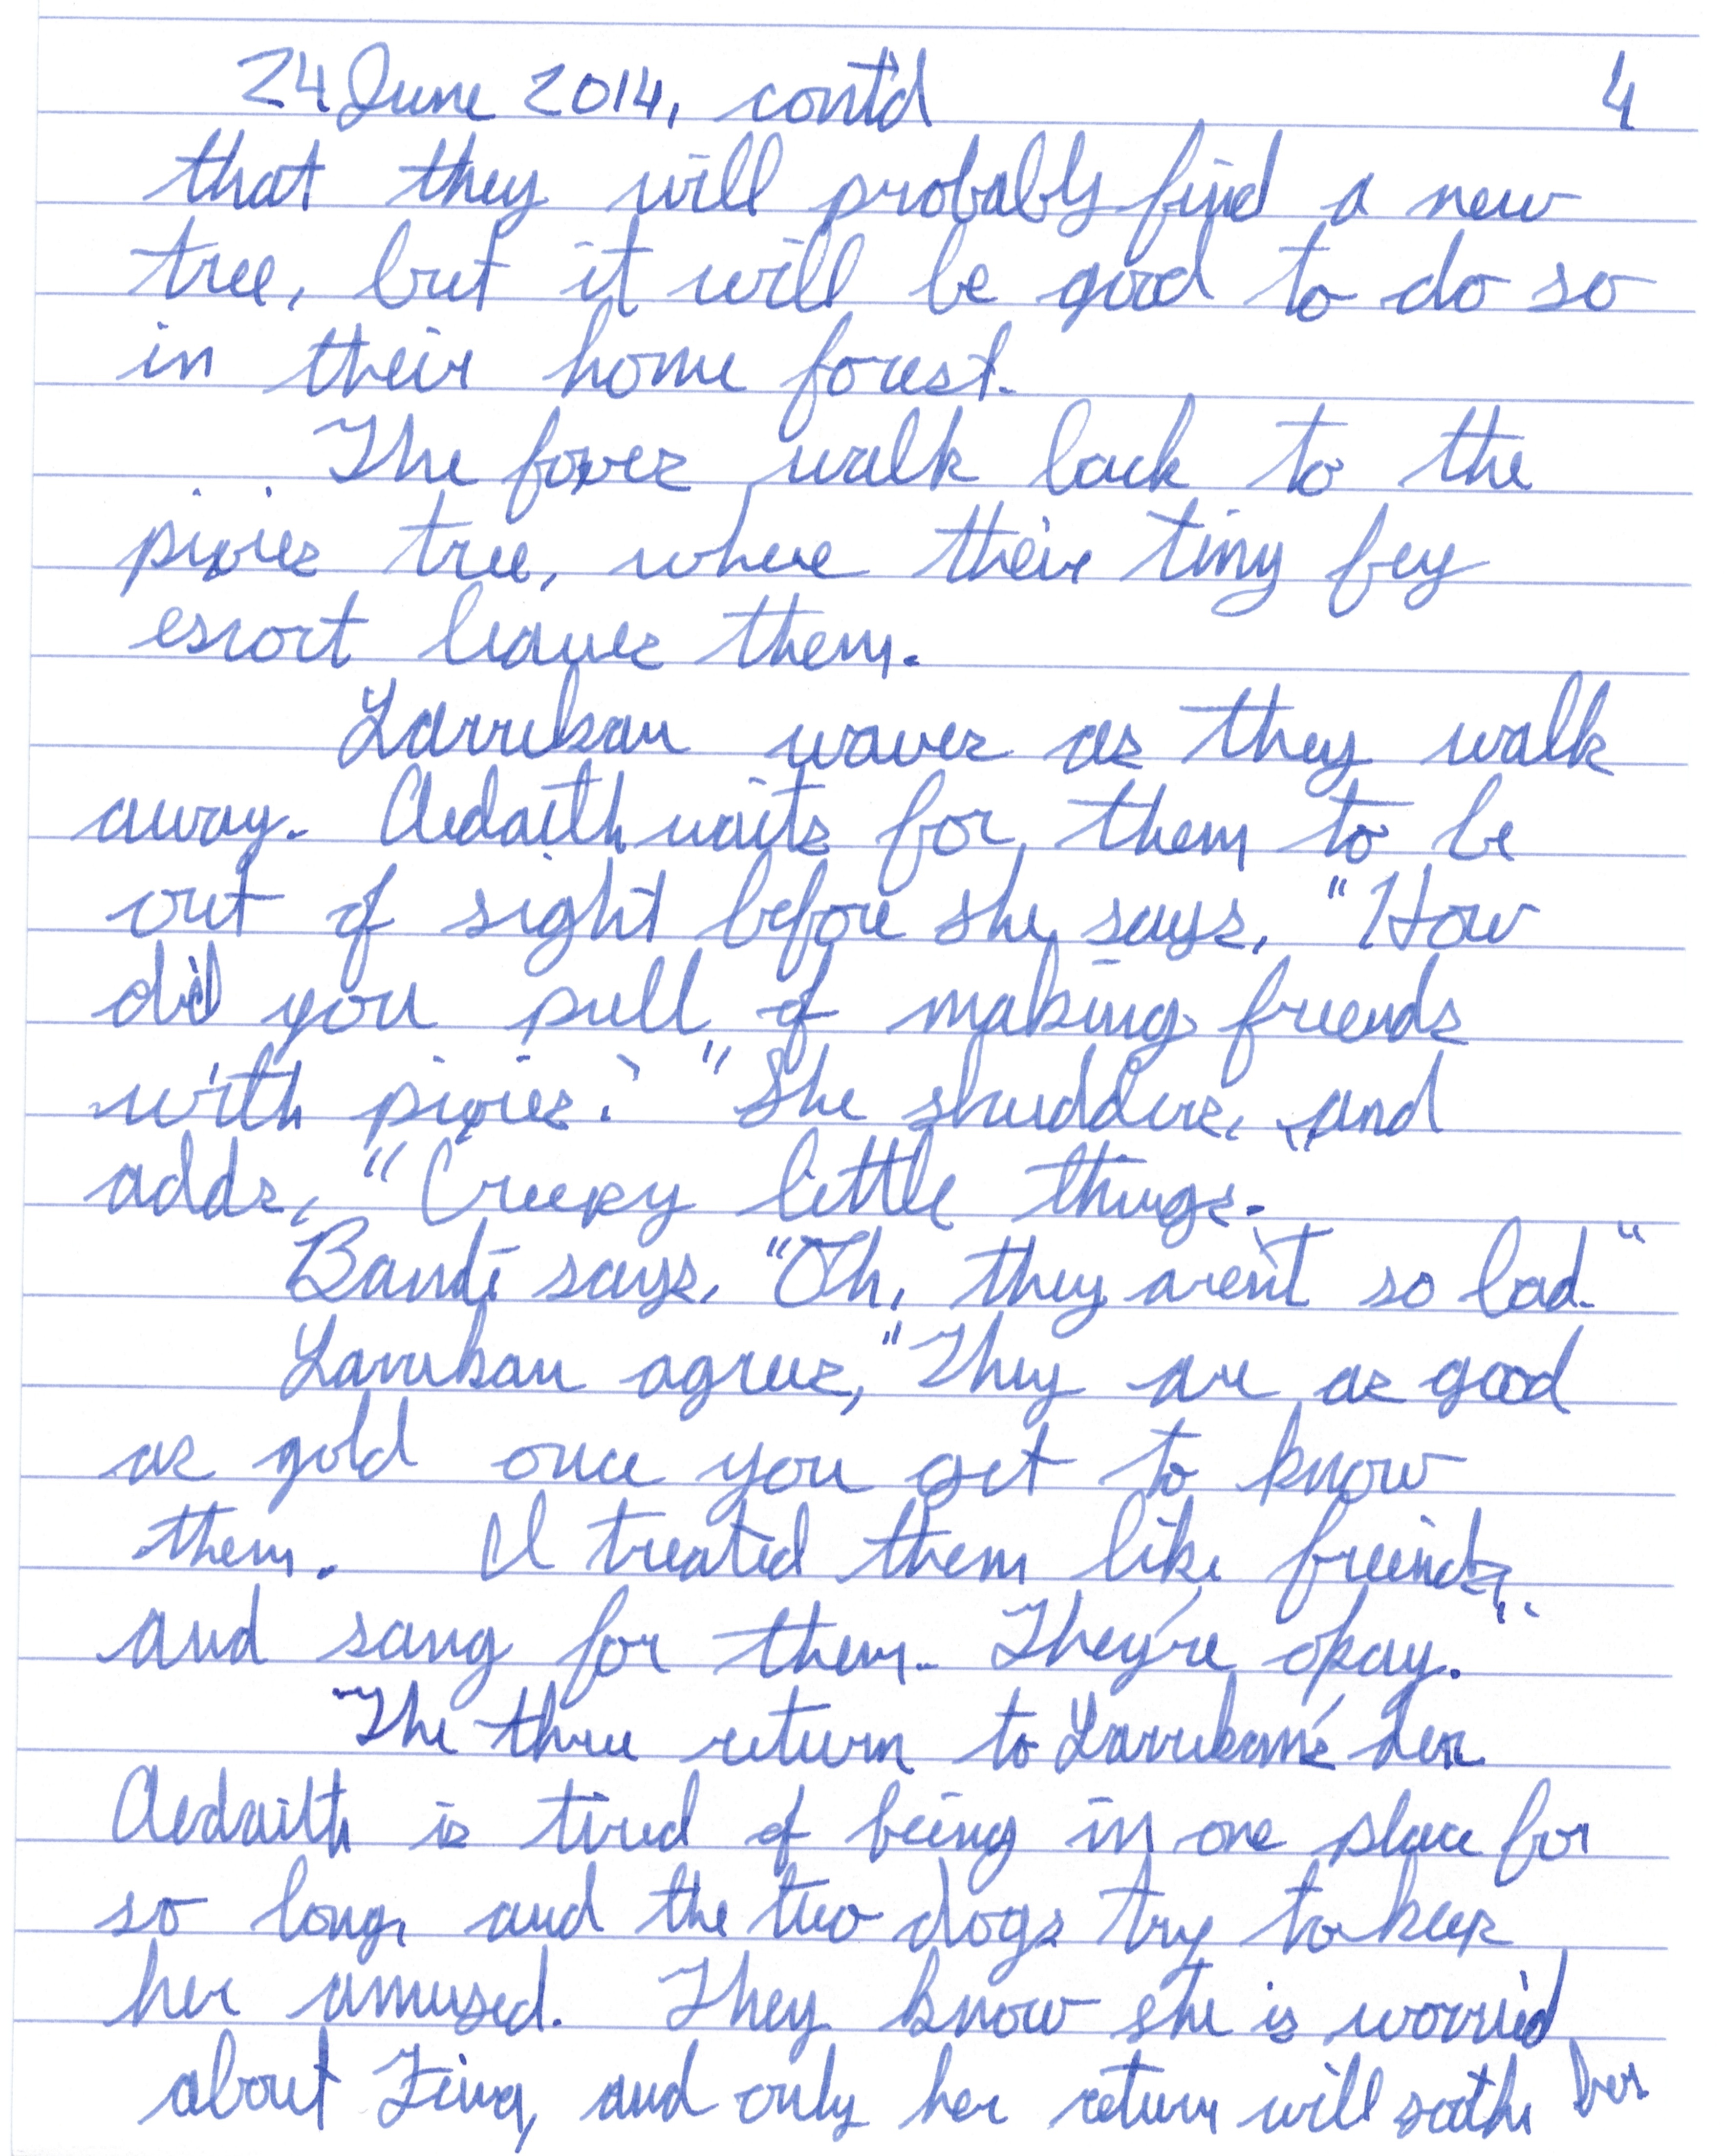 24 June 2014, cont'd 4
that they will probably find a new
tree, but it will be good to do so
in their home forest.
The foxes walk back to the
pixies tree, where their tiny fey
escort leaves them.
Larrikan waves as they walk
away. Aedaith waits for them to be
out of sight before she says, "How
did you pull of making friends
with pixies?" She shudders, and
adds, "Creepy little things.
Bandi says, "Oh, they aren't so bad."
Larrikan agrees, "They are as good
as gold once you get to know
them. I treated them like friends,
and sang for them. They're okay."
The three return to Larrikan's den
Aedaith is tired of being in one place for
so long, and the two dogs try to keep
her amused. They know she is worried
about Zing, and only her return will soothe her